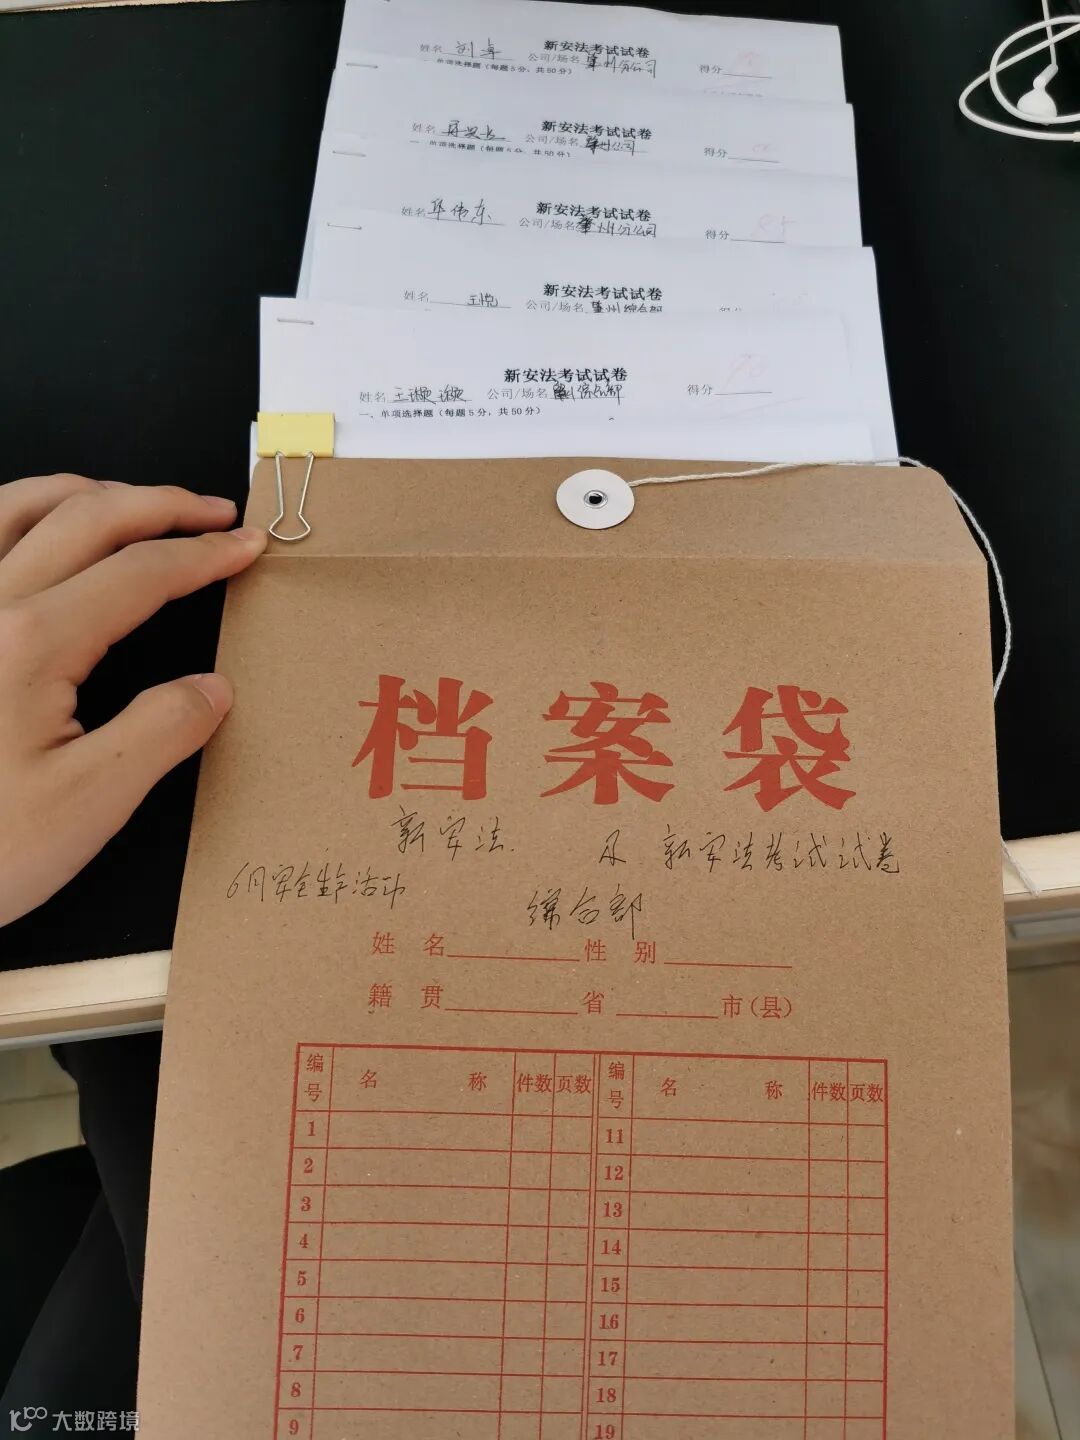 新安法考试试卷
姓名 刘卓 公司/场名 肇州分公司 得分
一、单项选择题（每题5分，共50分）
新安法考试试卷
姓名 公司/场名 肇州公司 得分
一、单项选择题（每题5分，共50分）
新安法考试试卷
姓名 华伟东 公司/场名 肇州分公司 得分
新安法考试试卷
姓名 王悦 公司/场名 肇州综合部 得分
新安法考试试卷
姓名 王 公司/场名 综合部 得分 90
一、单项选择题（每题5分，共50分）
档案袋
新安法 及 新安法考试试卷
6月安全生产活动
综合部
姓 名 性 别
籍 贯 省 市(县)
编号 名 称 件数 页数 编号 名 称 件数 页数
1 11
2 12
3 13
4 14
5 15
6 16
7 17
8 18
9 19
大数跨境